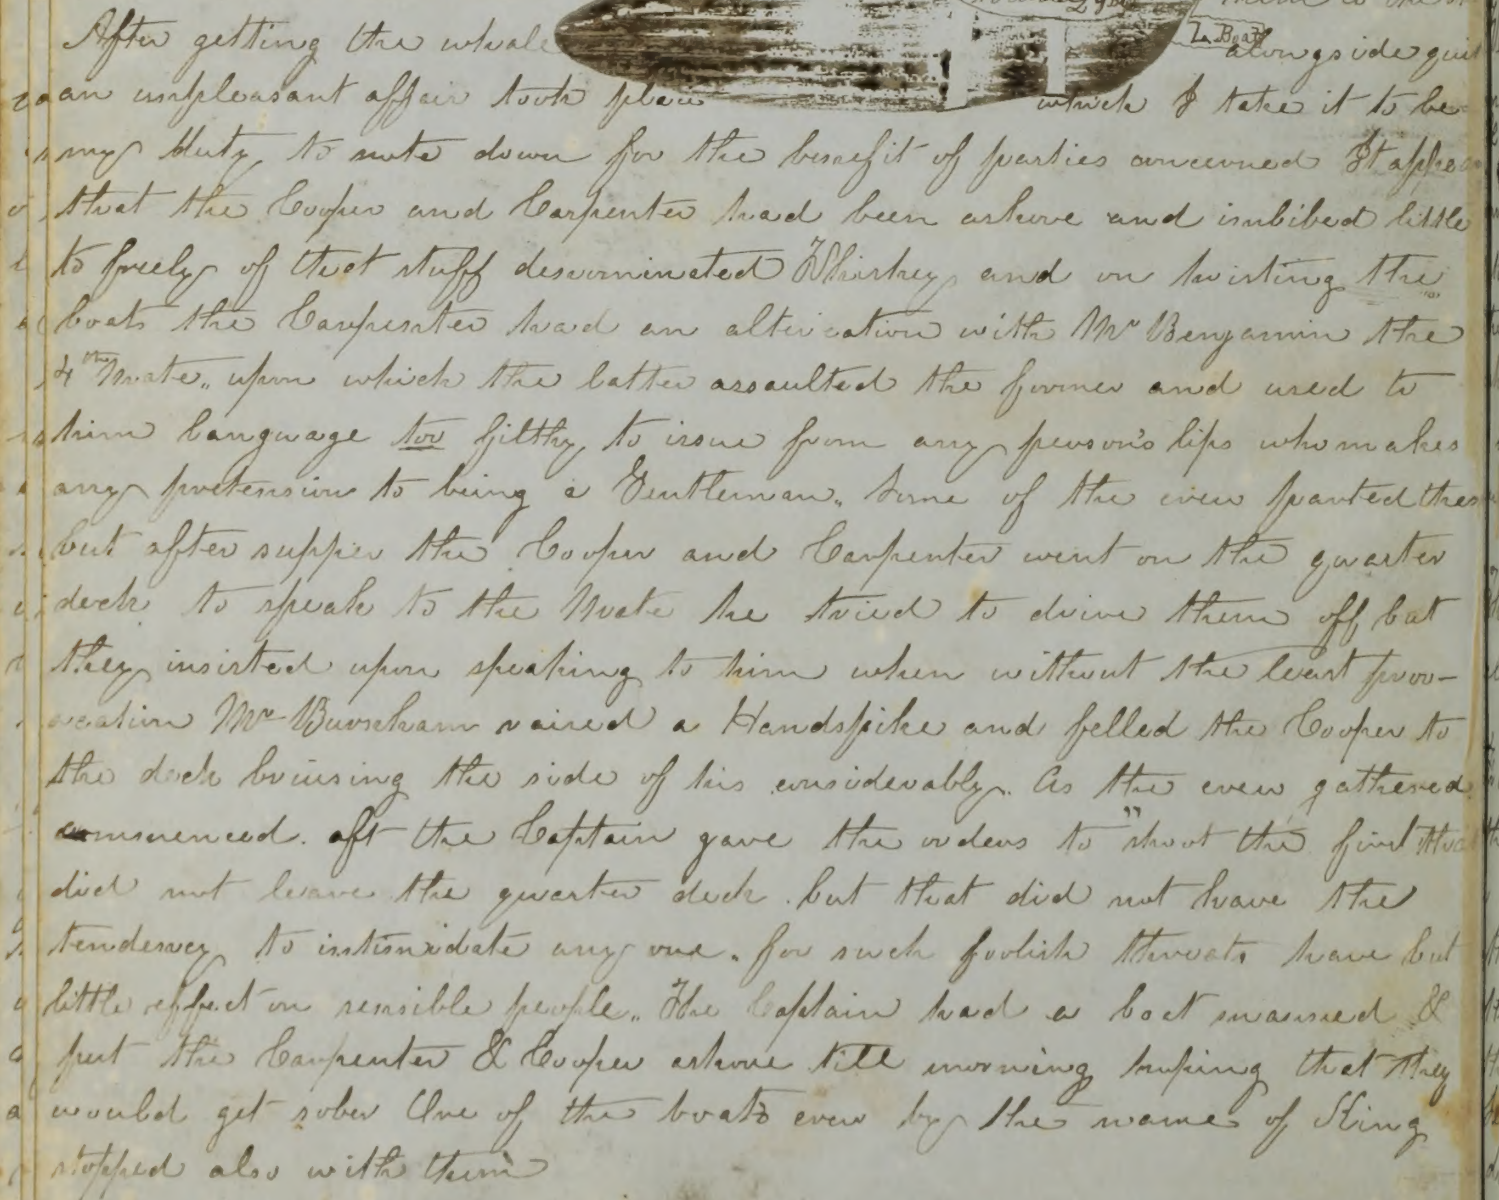 La Boat
After getting the whale alongside quit
an unpleasant affair took place which I take it to be
my duty to note down for the benefit of parties concerned It appea
that the Cooper and Carpenter had been ashore and imbibed little
to freely of that stuff denominated Whiskey and on hoisting the
boats the Carpenter had an altercation with Mr Benjamin the
4th Mate,, upon which the latter assaulted the former and used to
him language too filthy to issue from any person's lips who makes
any pretension to being a Gentleman,, Some of the crew parted them
but after supper the Cooper and Carpenter went on the quarter
deck to speak to the Mate he tried to drive them off but
they insisted upon speaking to him when without the least prov-
ocation Mr raised a Handspike and felled the Cooper to
the deck bruising the side of his considerably,, As the crew gathered
commenced. aft the Captain gave the orders to "shoot the first that
did not leave the quarter deck. but that did not have the
tendency to intimidate any one. for such foolish threats have but
little effect on sensible people,, The Captain had a boat manned &
put the Carpenter & Cooper ashore till morning hoping that they
would get sober One of the boats crew by the name of King
stopped also with them